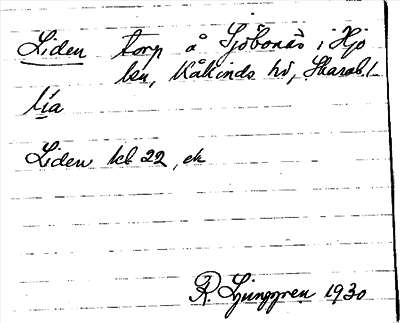 Liden torp å Sjöbonäs i Hjo
lsn, Kåkinds hd, Skarab. l
lía
Liden kb 22, ek
R. Ljunggren 1930